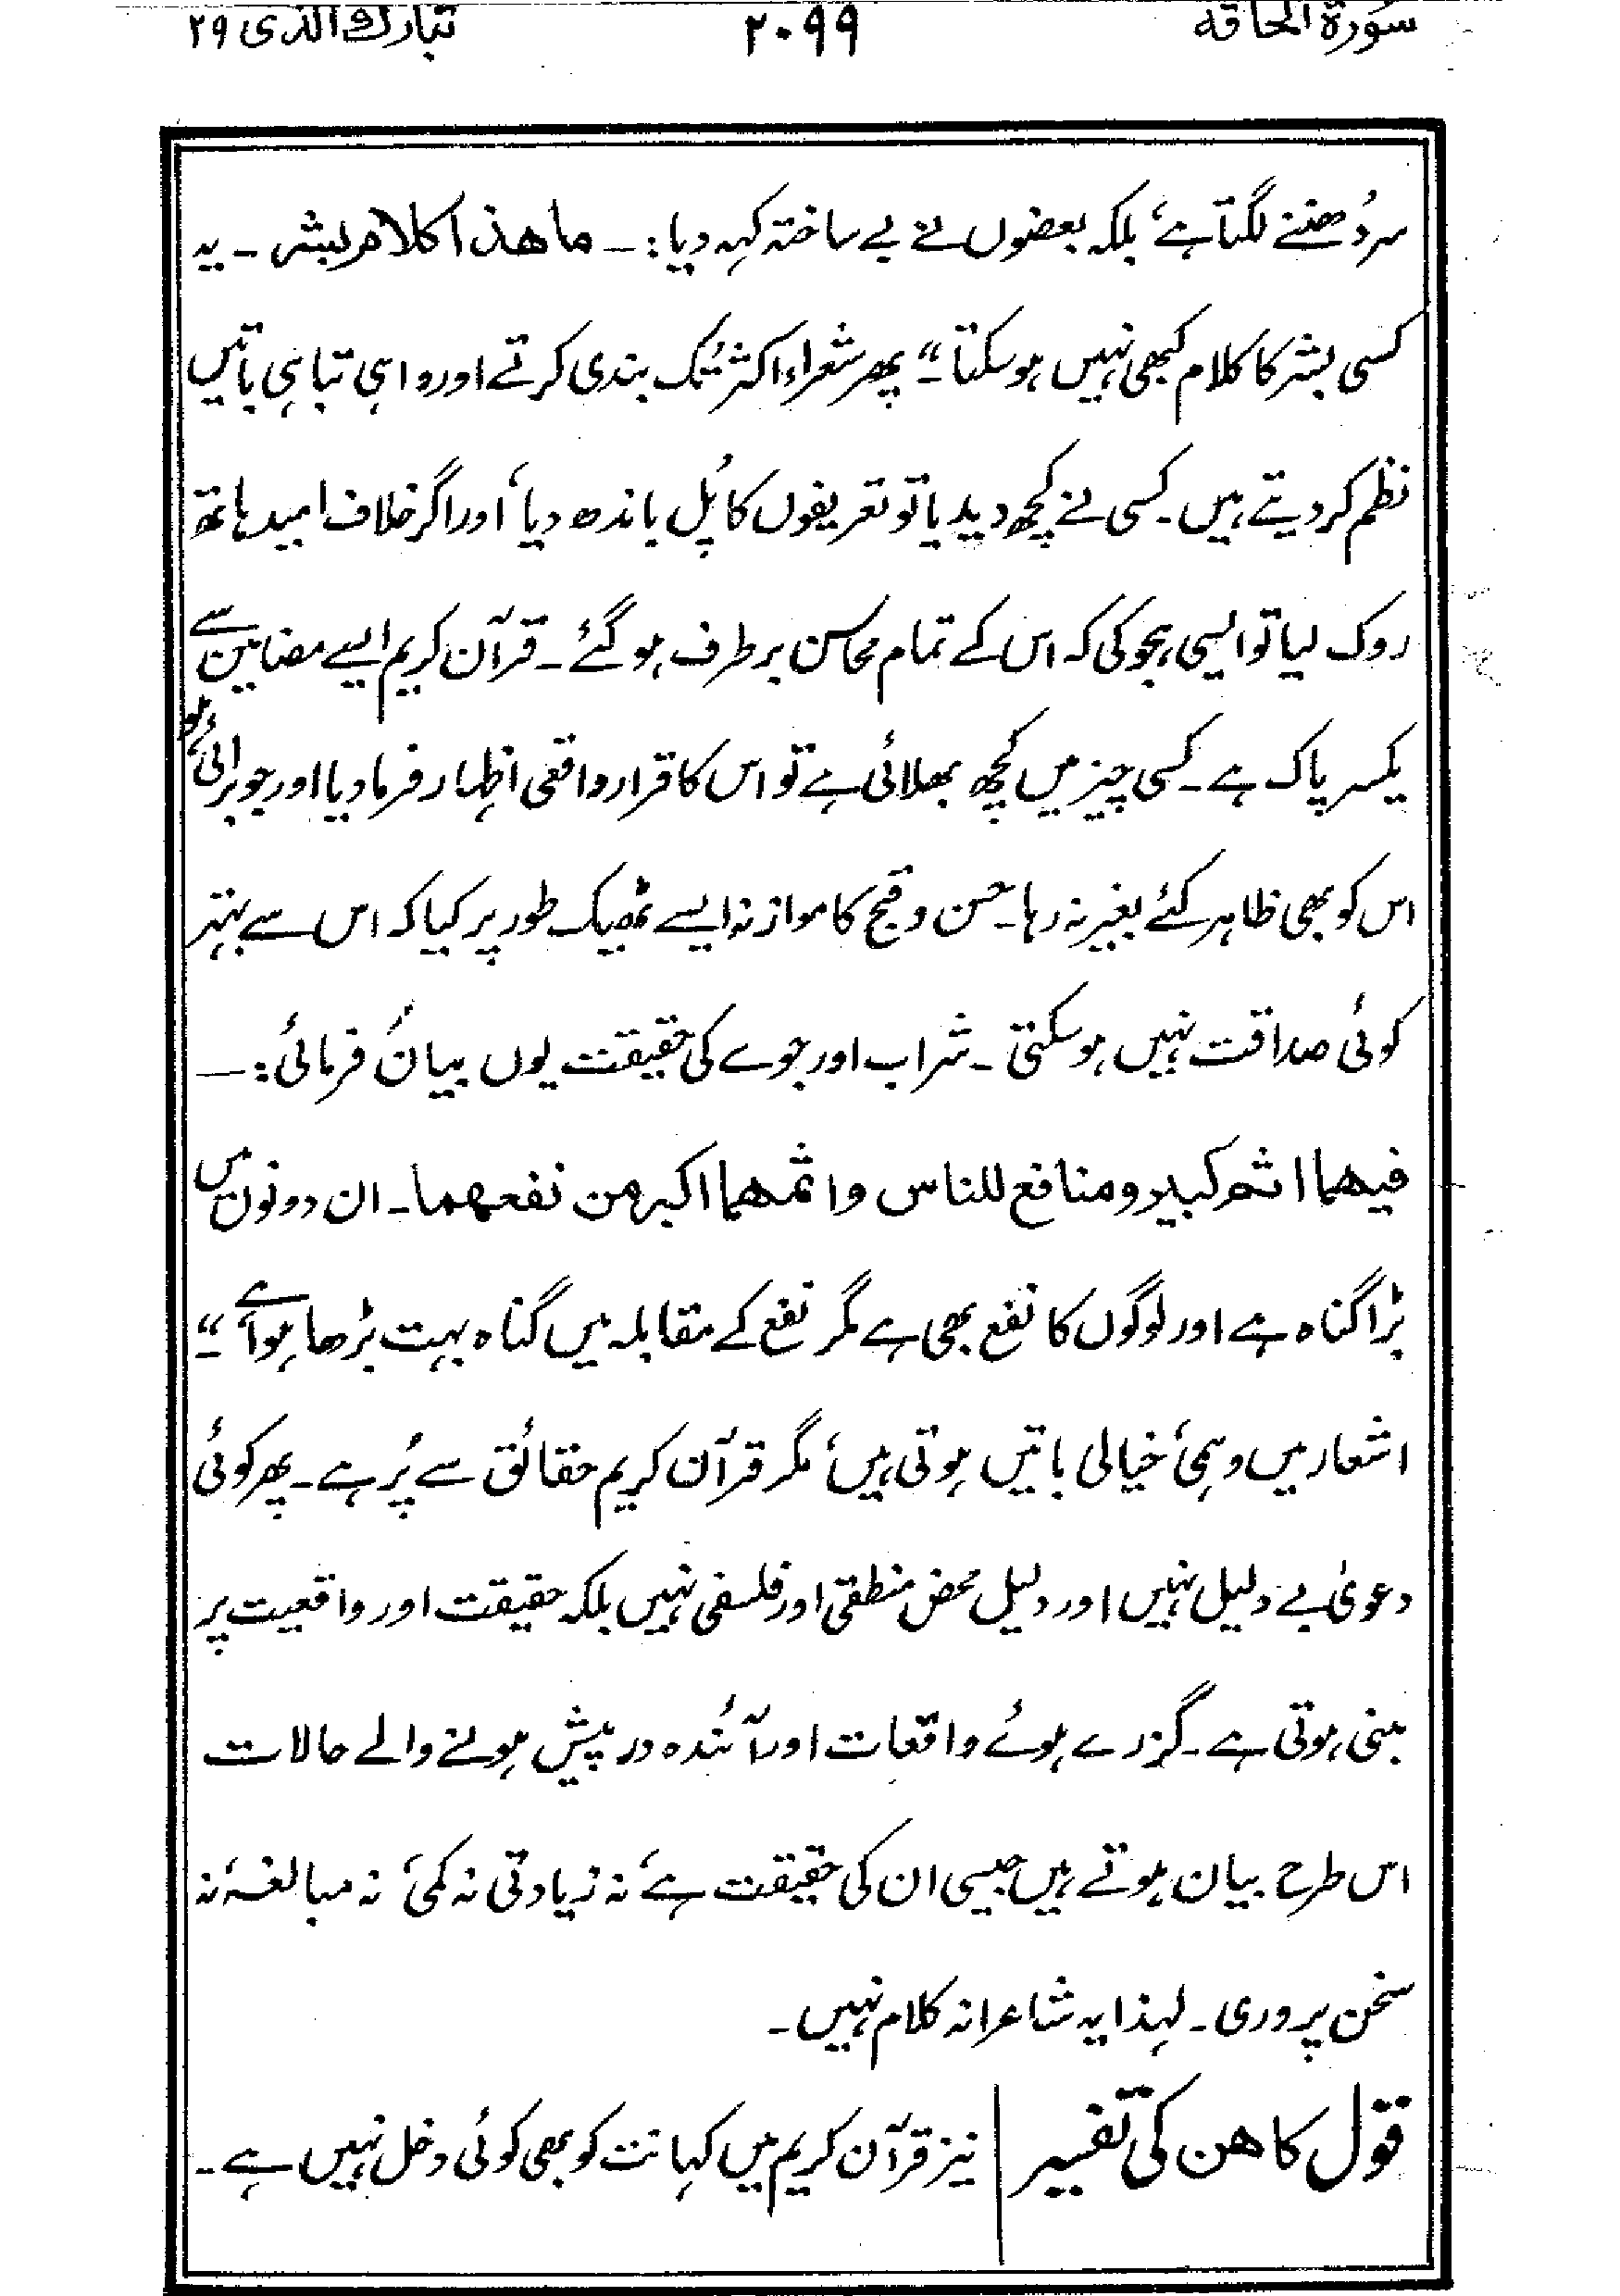 سورة الحاقه ۲۰۹۹ تبارك الذی ۲۹
سر دُھننے لگتا ہے، بلکہ بعضوں نے بے ساختہ کہہ دیا:۔ ماهذا كلام بشر۔ یہ
کسی بشر کا کلام کبھی نہیں ہوسکتا۔“ پھر شعراء اکثر تک بندی کرتے اور واہی تباہی باتیں
نظم کر دیتے ہیں۔ کسی نے کچھ دیدیا تو تعریفوں کا پُل باندھ دیا، اور اگر خلاف امید ہاتھ
روک لیا تو ایسی ہجو کی کہ اس کے تمام محاسن برطرف ہو گئے۔ قرآن کریم ایسے مضامین سے
یکسر پاک ہے۔ کسی چیز میں کچھ بھلائی ہے تو اس کا قرار واقعی اظہار فرما دیا اور جو برائی ہوئی
اس کو بھی ظاہر کئے بغیر نہ رہا۔ حسن و قبح کا موازنہ ایسے ٹھیک طور پر کیا کہ اس سے بہتر
کوئی صداقت نہیں ہوسکتی۔ شراب اور جوے کی حقیقت یوں بیان فرمائی:۔
فيهما اثم كبير ومنافع للناس واثمهما اكبر من نفعهما۔ ان دونوں میں
بڑا گناہ ہے اور لوگوں کا نفع بھی ہے مگر نفع کے مقابلہ میں گناہ بہت بڑھا ہوا ہے۔“
اشعار میں وہمی، خیالی باتیں ہوتی ہیں، مگر قرآن کریم حقائق سے پُر ہے۔ پھر کوئی
دعویٰ بے دلیل نہیں اور دلیل محض منطقی اور فلسفی نہیں بلکہ حقیقت اور واقعیت پر
مبنی ہوتی ہے۔ گزرے ہوئے واقعات اور آئندہ درپیش ہونے والے حالات
اس طرح بیان ہوتے ہیں جیسی ان کی حقیقت ہے، نہ زیادتی نہ کمی، نہ مبالغہ، نہ
سخن پروری۔ لہذا یہ شاعرانہ کلام نہیں۔
قول كاهن کی تفسیر | نیز قرآن کریم میں کہانت کو بھی کوئی دخل نہیں ہے۔